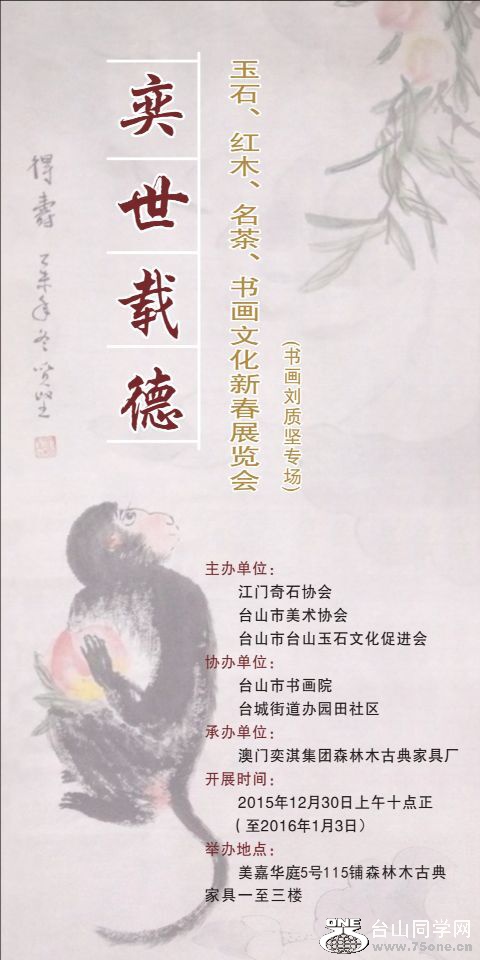 奕世载德
玉石、红木、名茶、书画文化新春展览会
(书画刘质坚专场)
得寿
乙未年冬 质坚
主办单位：
江门奇石协会
台山市美术协会
台山市台山玉石文化促进会
协办单位：
台山市书画院
台城街道办园田社区
承办单位：
澳门奕淇集团森林木古典家具厂
开展时间：
2015年12月30日上午十点正
（至2016年1月3日）
举办地点：
美嘉华庭5号115铺森林木古典
家具一至三楼
ONE
台山同学网
www.75one.cn